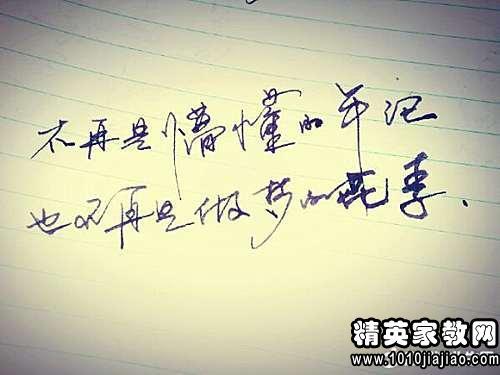 不再是懵懂的年记
也不再是做梦的花季.
精英家教网
www.1010jiajiao.com